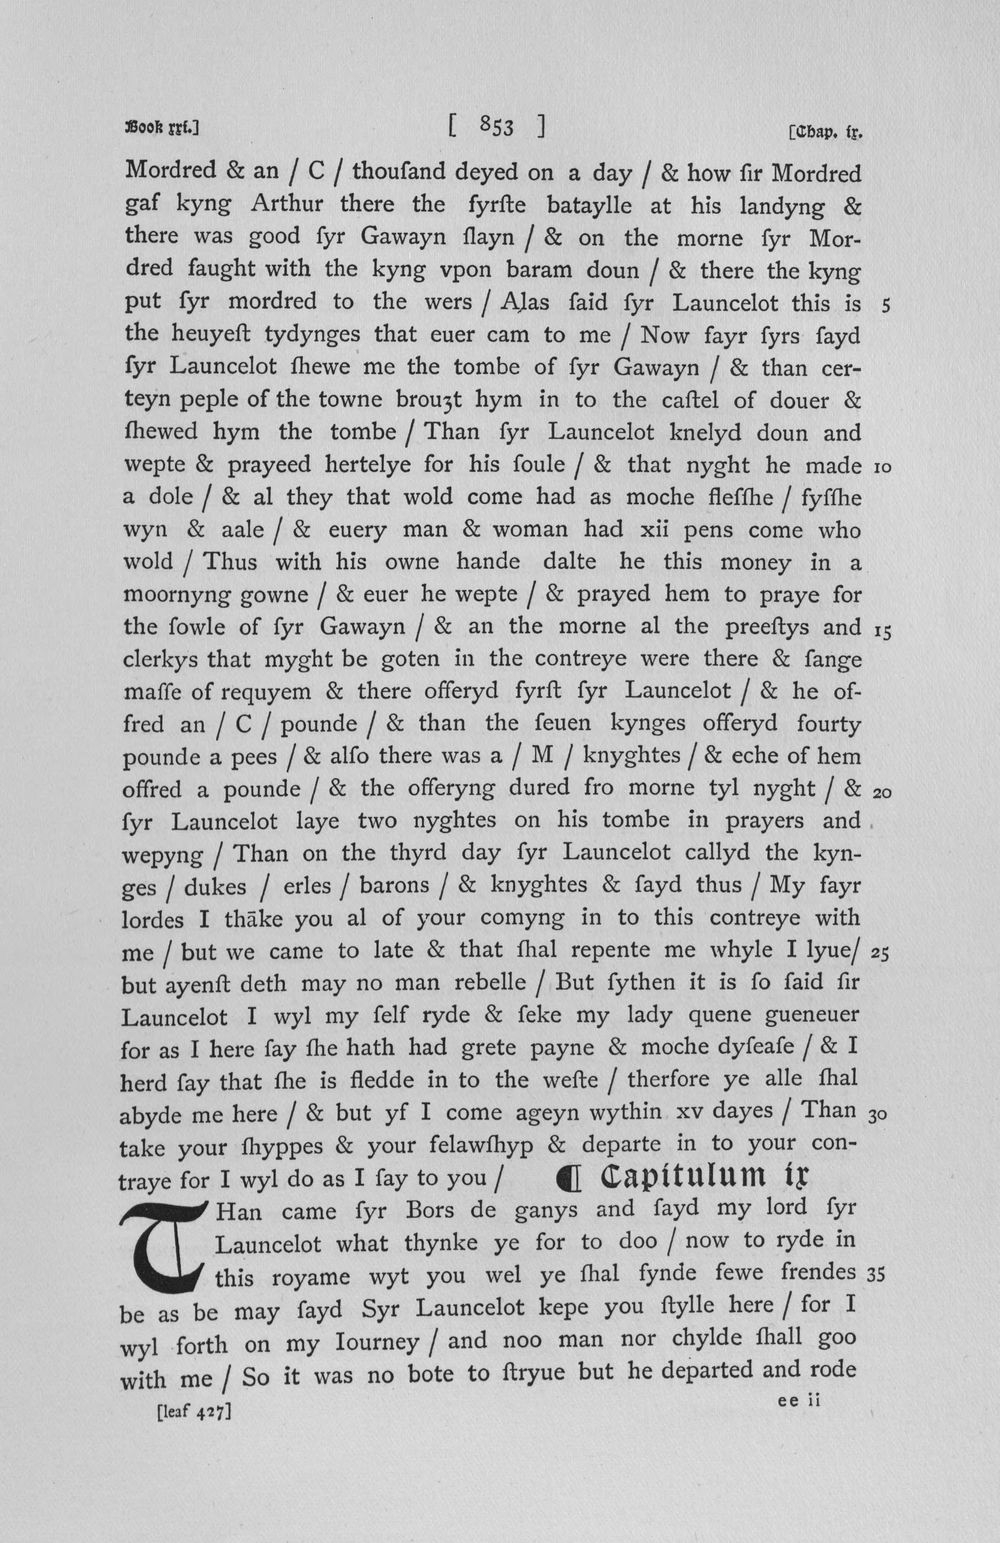 Book xxi.] [ 853 ] [Chap. ix.
Mordred & an / C / thouſand deyed on a day / & how ſir Mordred
gaf kyng Arthur there the fyrſte bataylle at his landyng &
there was good ſyr Gawayn ſlayn / & on the morne ſyr Mor-
dred faught with the kyng vpon baram doun / & there the kyng
put ſyr mordred to the wers / Alas ſaid ſyr Launcelot this is 5
the heuyeſt tydynges that euer cam to me / Now fayr ſyrs ſayd
ſyr Launcelot ſhewe me the tombe of ſyr Gawayn / & than cer-
teyn peple of the towne brouȝt hym in to the caſtel of douer &
ſhewed hym the tombe / Than ſyr Launcelot knelyd doun and
wepte & prayeed hertelye for his ſoule / & that nyght he made 10
a dole / & al they that wold come had as moche fleſſhe / fyſſhe
wyn & aale / & euery man & woman had xii pens come who
wold / Thus with his owne hande dalte he this money in a
moornyng gowne / & euer he wepte / & prayed hem to praye for
the ſowle of ſyr Gawayn / & an the morne al the preeſtys and 15
clerkys that myght be goten in the contreye were there & ſange
maſſe of requyem & there offeryd fyrſt ſyr Launcelot / & he of-
fred an / C / pounde / & than the ſeuen kynges offeryd fourty
pounde a pees / & alſo there was a / M / knyghtes / & eche of hem
offred a pounde / & the offeryng dured fro morne tyl nyght / & 20
ſyr Launcelot laye two nyghtes on his tombe in prayers and
wepyng / Than on the thyrd day ſyr Launcelot callyd the kyn-
ges / dukes / erles / barons / & knyghtes & ſayd thus / My fayr
lordes I thāke you al of your comyng in to this contreye with
me / but we came to late & that ſhal repente me whyle I lyue/ 25
but ayenſt deth may no man rebelle / But ſythen it is ſo ſaid ſir
Launcelot I wyl my ſelf ryde & ſeke my lady quene gueneuer
for as I here ſay ſhe hath had grete payne & moche dyſeaſe / & I
herd ſay that ſhe is fledde in to the weſte / therfore ye alle ſhal
abyde me here / & but yf I come ageyn wythin xv dayes / Than 30
take your ſhyppes & your felawſhyp & departe in to your con-
traye for I wyl do as I ſay to you / ¶ Capitulum ix
THan came ſyr Bors de ganys and ſayd my lord ſyr
Launcelot what thynke ye for to doo / now to ryde in
this royame wyt you wel ye ſhal fynde fewe frendes 35
be as be may ſayd Syr Launcelot kepe you ſtylle here / for I
wyl forth on my Iourney / and noo man nor chylde ſhall goo
with me / So it was no bote to ſtryue but he departed and rode
[leaf 427] ee ii